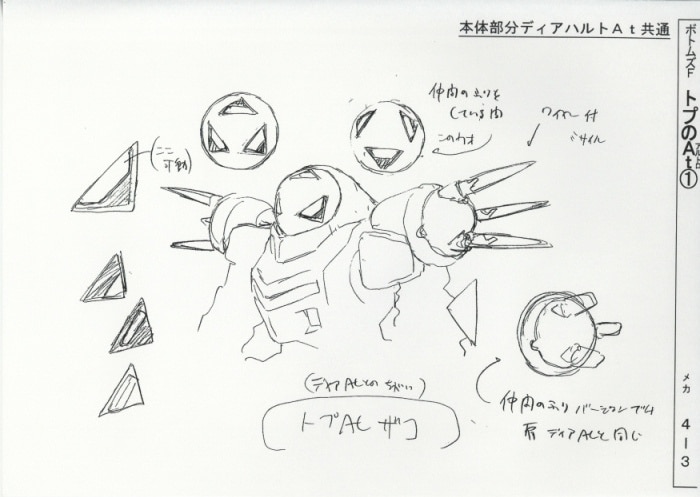 本体部分ディアハルトAt共通
ボトムズF
トプのAt①
メカ
4-3
仲間のふりを
している時
このカオ
ワイヤー付
ミサイル
(ここ
可動)
(ディアAtとのちがい)
トプAtザコ
仲間のふりバージョンでは
肩ディアAtと同じ